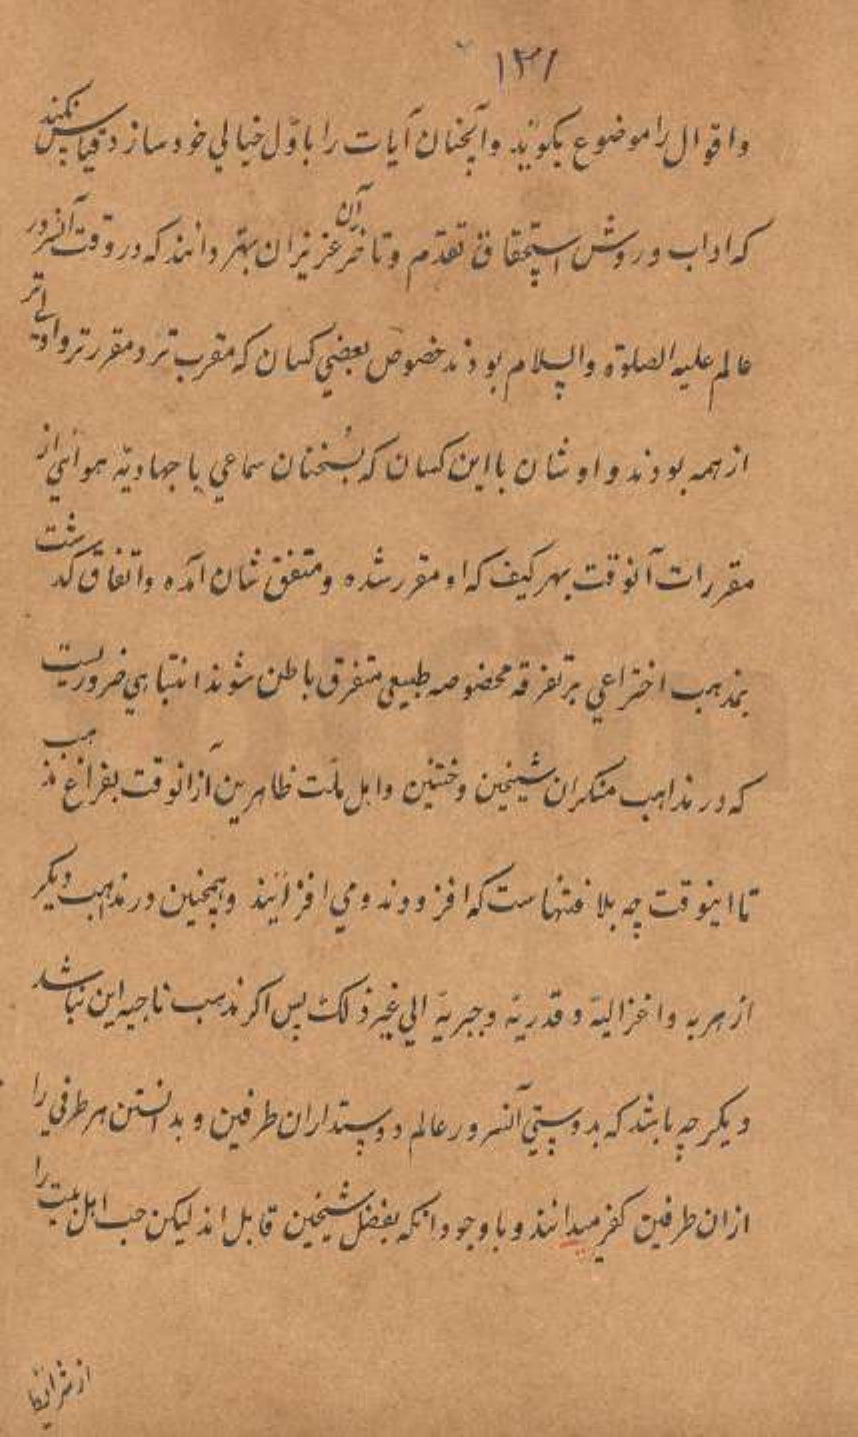 ۱۳۱
واقوال را موضوع بگویند و آنچنان آیات را باوّل خیالی خود سازد قیاس نکنند
که اداب و روش استحقاق تقدّم و تاخر آن عزیزان بهتر دانند که در وقت آنسرور
عالم علیه الصلوة والسلام بودند خصوص بعضی کسان که مقرب تر و مقررتر و اولی تر
از همه بودند و اوشان با این کسان که بسخنان سماعی یا جهادیه هوائی از
مقررات آنوقت بهر کیف که او مقرر شده و متفق شان آمده واتفاق گذشت
بمذهب اختراعی بر تفرقه مخصوصه طبیعی متفرق باطن شوند انتباهی ضروریست
که در مذاهب منکران شیخین وختنین واهل ملّت ظاهربین آزانوقت بفراغ مذهب
تا اینوقت چه بلا فتنهاست که افزودند و می افزائیند وهمچنین در مذاهب دیگر
از هریه واعزالیه وقدریّه وجبریّه الی غیر ذلک پس اگر مذهب ناجیه این نباشد
دیگر چه باشد که بدوستی آنسرور عالم دوستداران طرفین و بدانستن هر طرفی را
ازان طرفین کفر میدانند وباوجود انکه بفضل شیخین قابل اند لیکن حب اهل بیت را
از شرائط